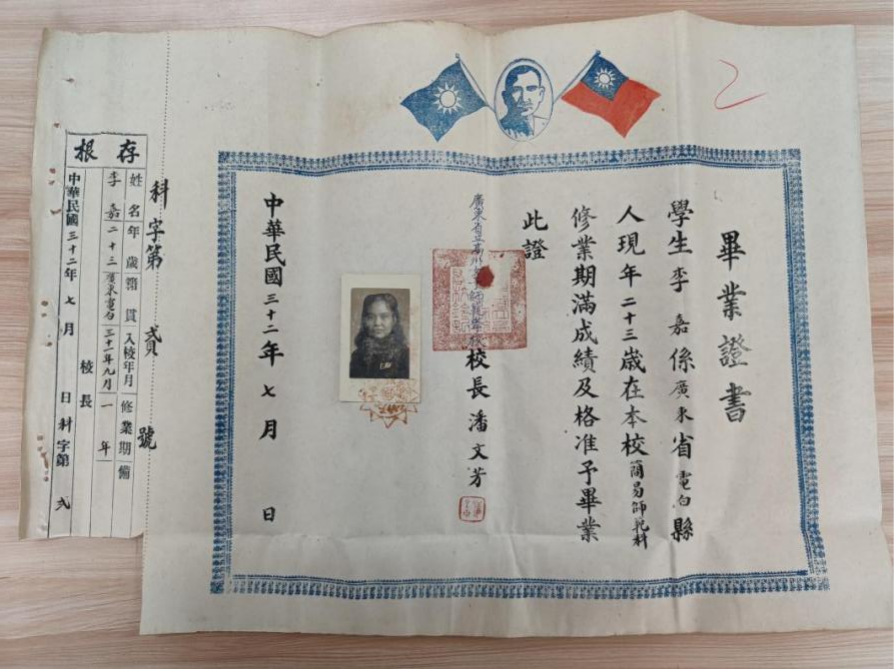 畢業證書
學生李嘉係廣東省電白縣
人現年二十三歲在本校簡易師範科
修業期滿成績及格准予畢業
此證
校長潘文芳
中華民國三十二年七月 日
科字第貳號
存根
姓名 年歲 籍貫 入校年月 修業期 備
李嘉 二十三 廣東電白 三十一年九月 一年
校長
中華民國三十二年七月 日 科字第弍